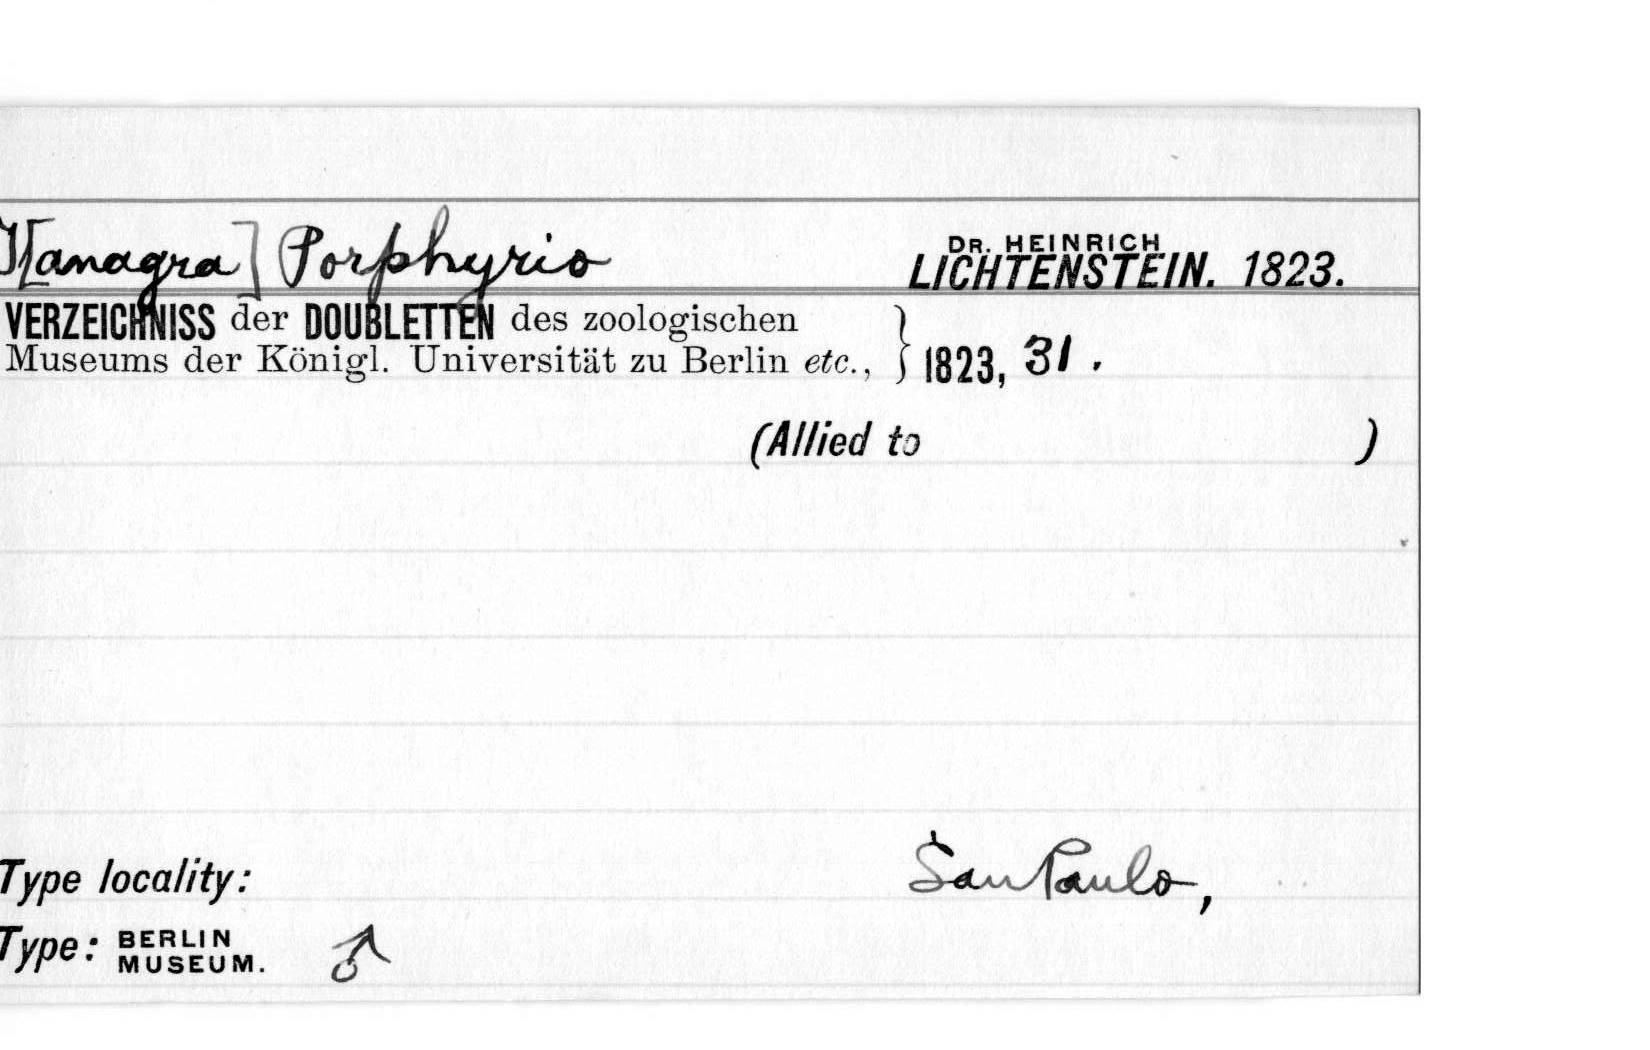 T[anagra] Porphyrio
DR. HEINRICH
LICHTENSTEIN. 1823.
VERZEICHNISS der DOUBLETTEN des zoologischen
Museums der Königl. Universität zu Berlin etc., } 1823, 31.
(Allied to )
Type locality: San Paulo,
Type: BERLIN MUSEUM. ♂